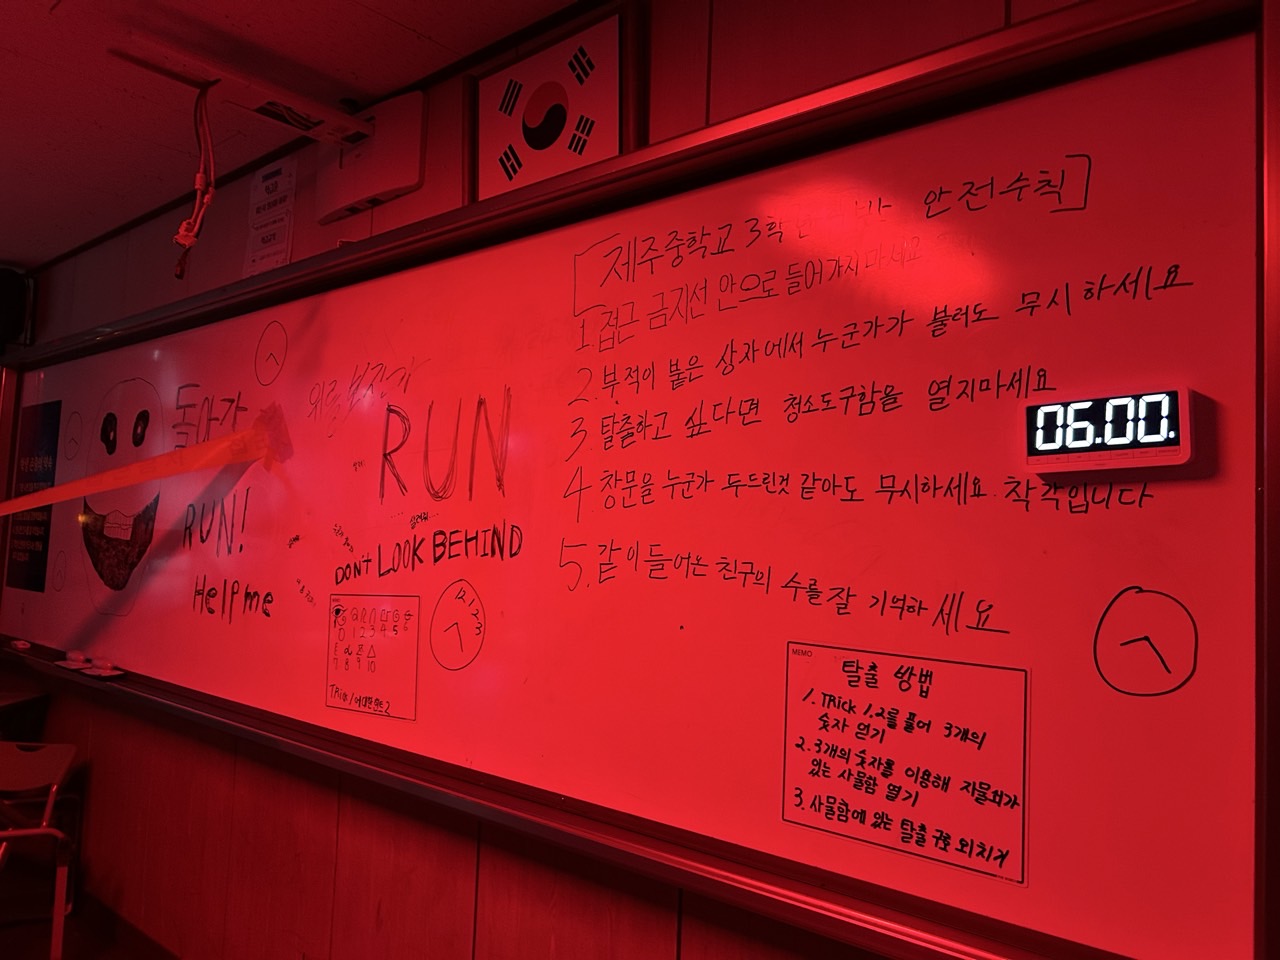 [제주중학교 3학 반 안전수칙]
1. 접근 금지선 안으로 들어가지 마세요
2. 부적이 붙은 상자에서 누군가가 불러도 무시하세요
3. 탈출하고 싶다면 청소도구함을 열지마세요
06.00.
4. 창문을 누군가 두드린것 같아도 무시하세요. 착각입니다
5. 같이 들어온 친구의 수를 잘 기억하세요
돌아가
RUN!
Help me
위를
RUN
살려줘
DON't LOOK BEHIND
12 1 2 3
MEMO
0 1 2 3 4 5 6
7 8 9 10
TRick
MEMO
탈출 방법
1. TRick 1,2를 풀어 3개의
숫자 얻기
2. 3개의 숫자를 이용해 자물쇠가
있는 사물함 열기
3. 사물함에 있는 탈출구호 외치기